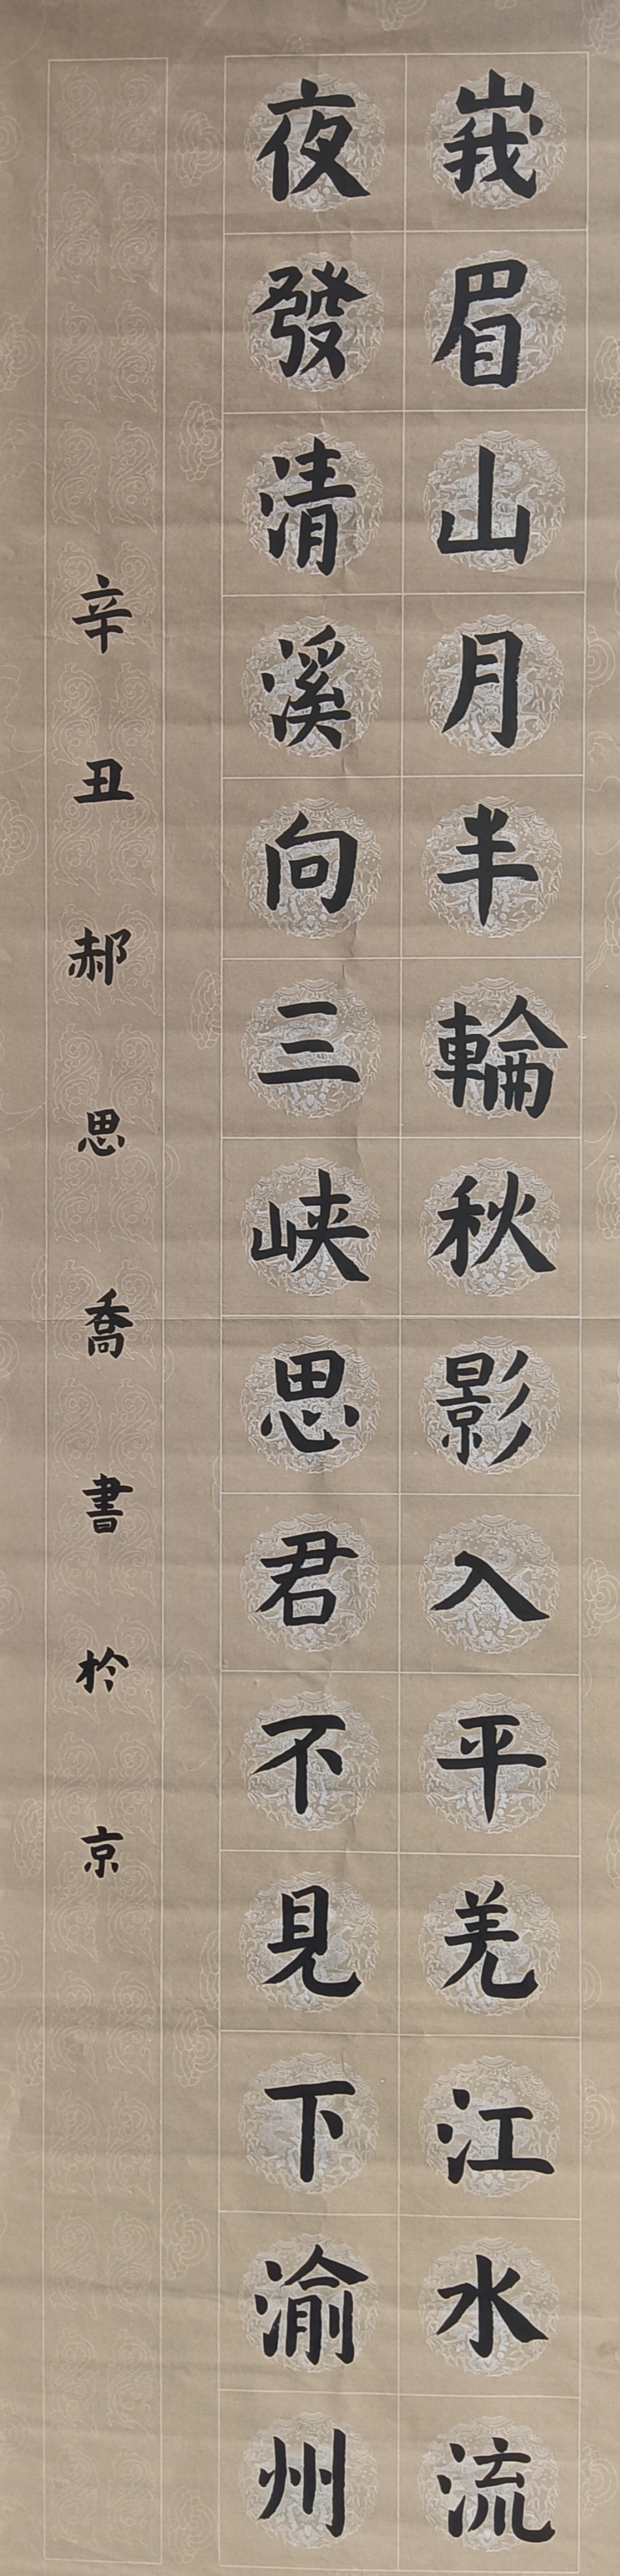 峩眉山月半輪秋影入平羌江水流
夜發清溪向三峡思君不見下渝州
辛丑郝思喬書於京